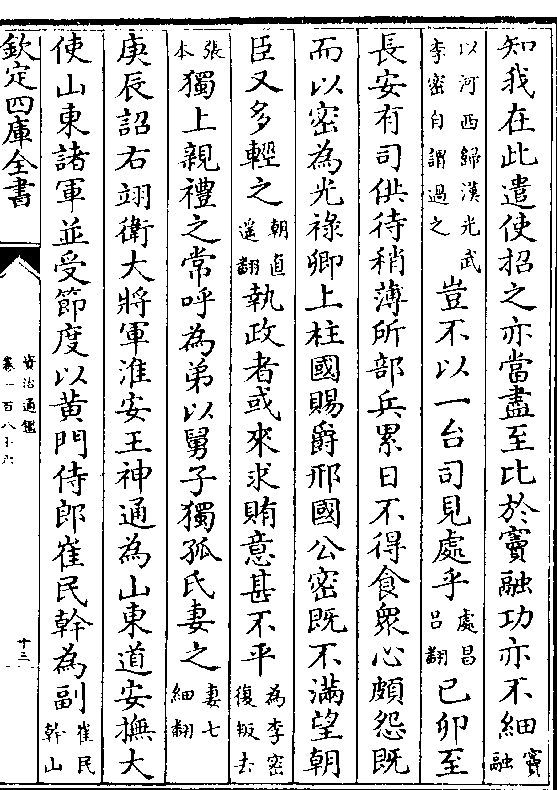 知我在此遣使招之亦當盡至比於竇融功亦不細竇融
以河西歸漢光武李密自謂過之豈不以一台司見處乎處昌呂翻己卯至
長安有司供待稍薄所部兵累日不得食衆心頗怨既
而以密為光祿卿上柱國賜爵邢國公密既不滿望朝
臣又多輕之朝直遥翻執政者或來求賄意甚不平為李密復叛去
張本獨上親禮之常呼為弟以舅子獨孤氏妻之妻七細翻
庚辰詔右翊衛大將軍淮安王神通為山東道安撫大
使山東諸軍並受節度以黃門侍郎崔民幹為副崔民幹山
欽定四庫全書
資治通鑑
卷一百八十六
十三